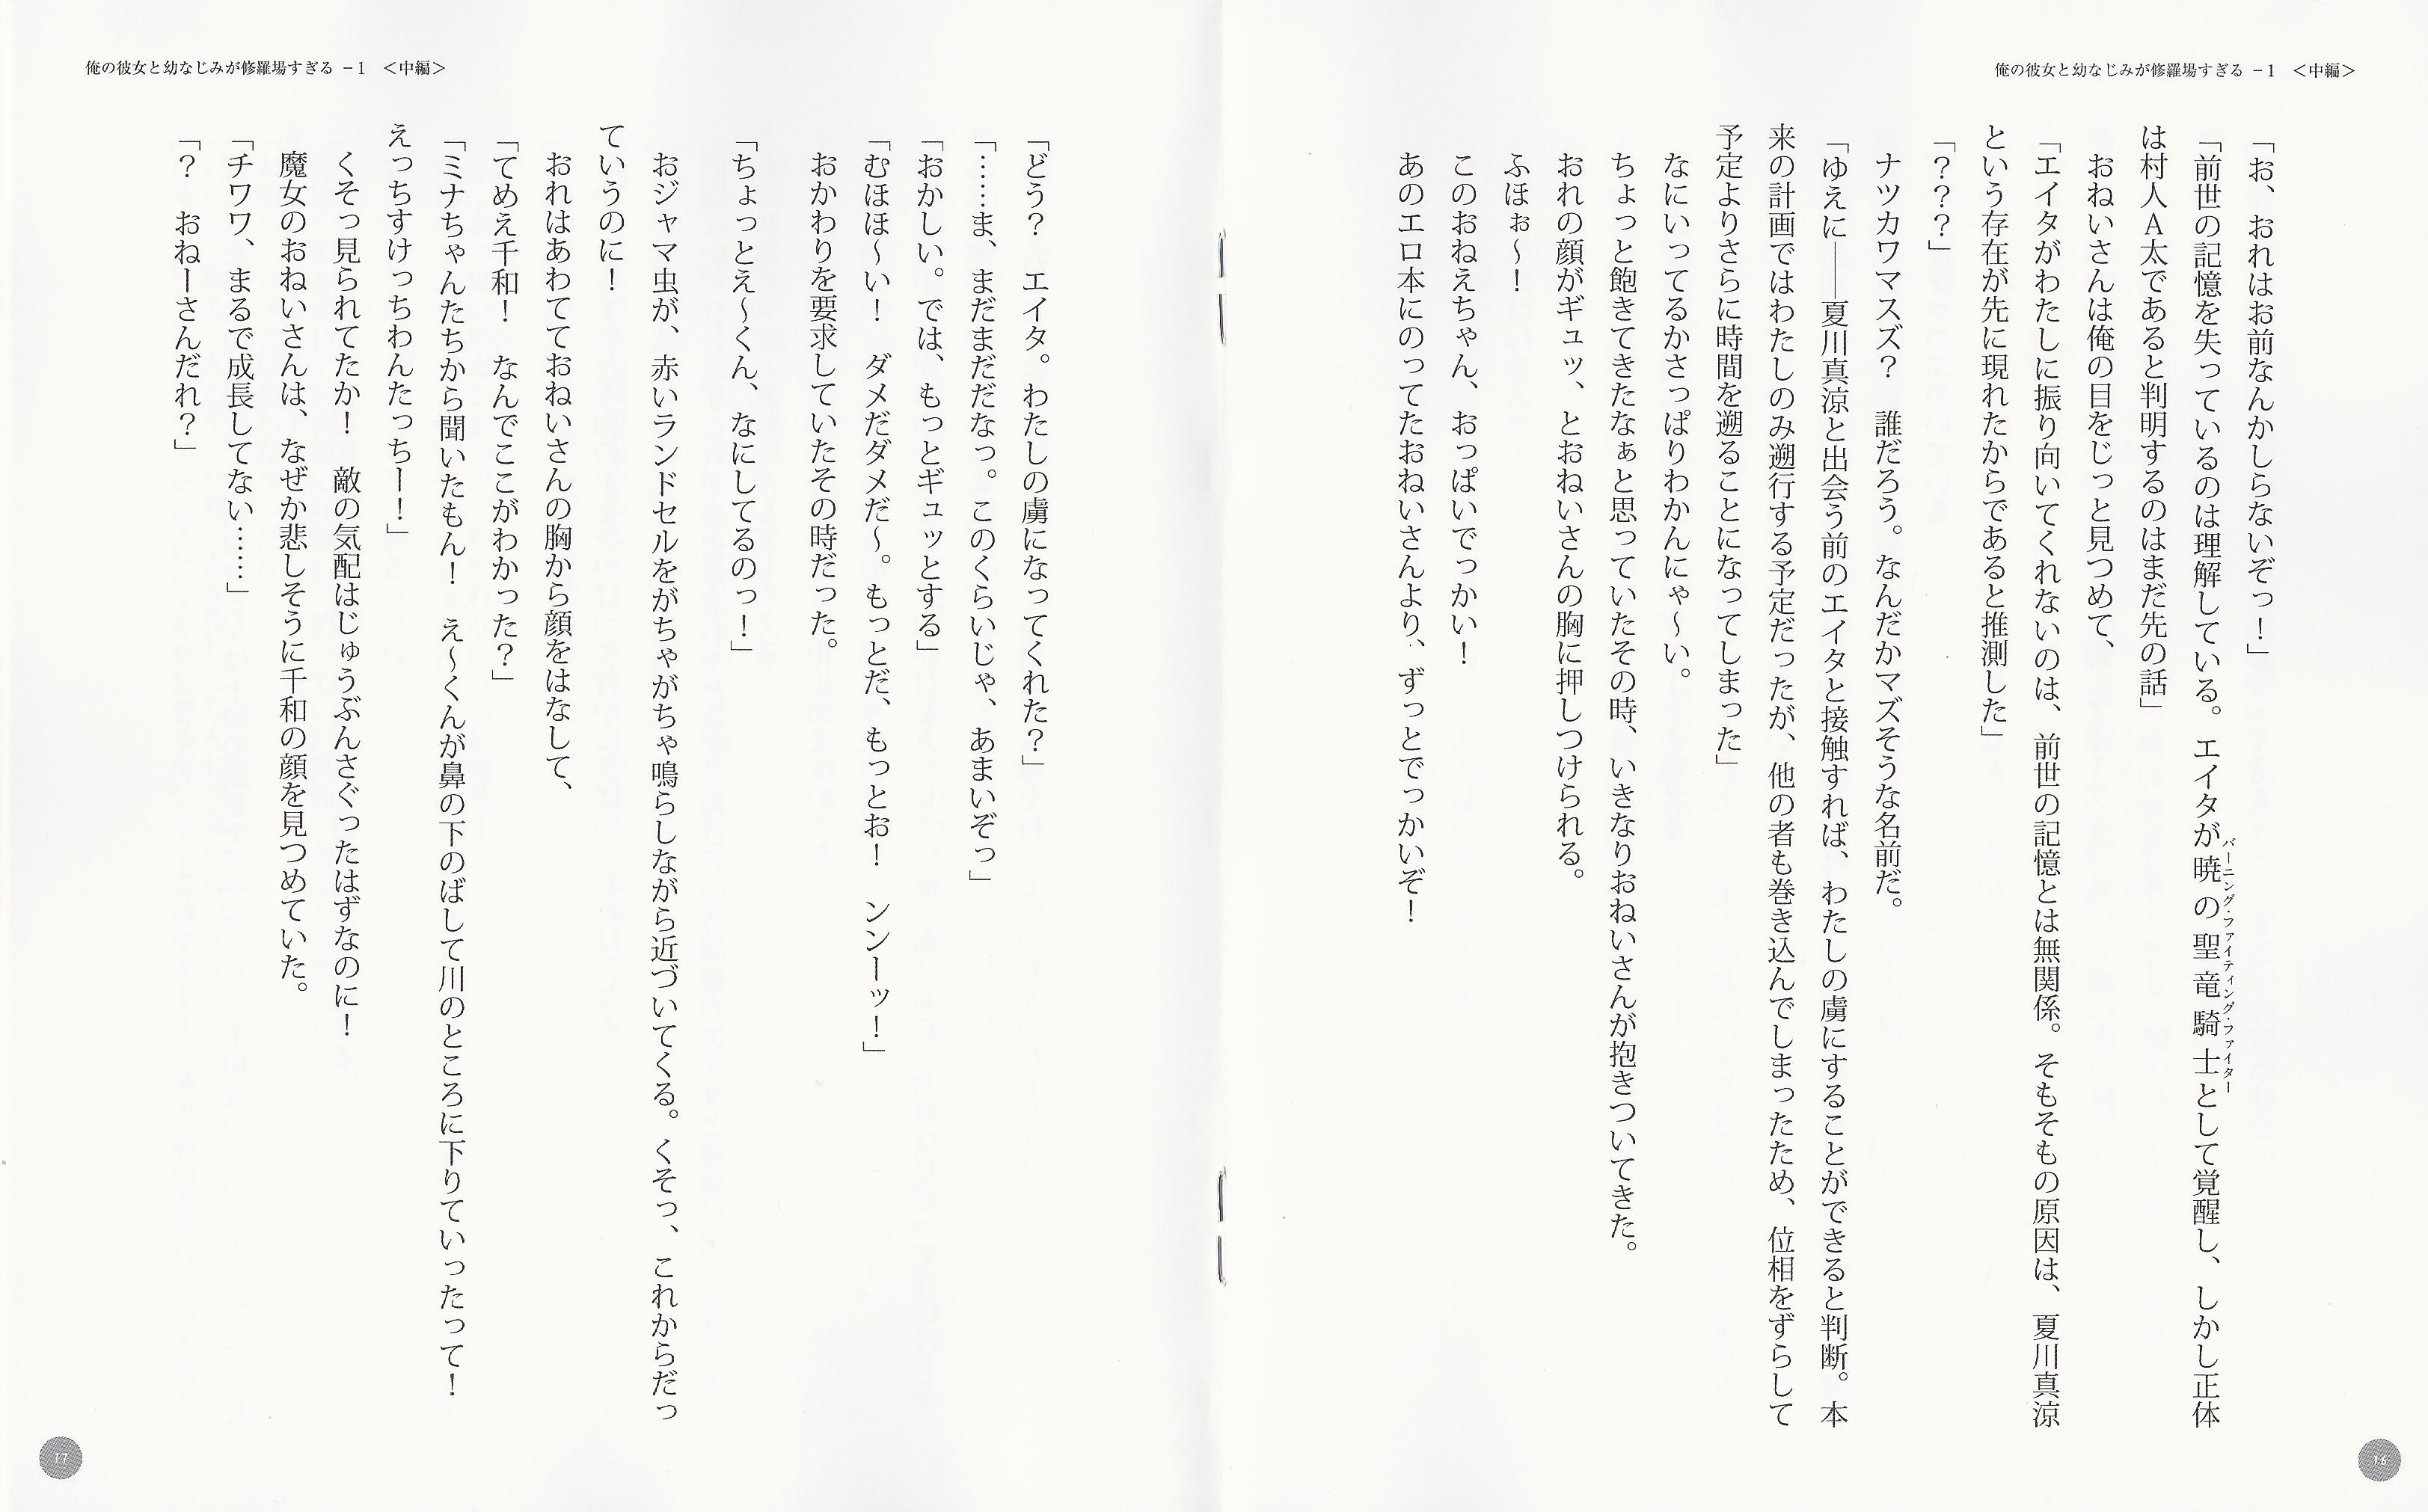 俺の彼女と幼なじみが修羅場すぎる −1　＜中編＞
「お、おれはお前なんかしらないぞっ！」
「前世の記憶を失っているのは理解している。エイタが暁の聖竜騎士として覚醒し、しかし正体
バーニング・ファイティング・ファイター
は村人Ａ太であると判明するのはまだ先の話」
　おねいさんは俺の目をじっと見つめて、
「エイタがわたしに振り向いてくれないのは、前世の記憶とは無関係。そもそもの原因は、夏川真涼
という存在が先に現れたからであると推測した」
「？？？」
　ナツカワマスズ？　誰だろう。なんだかマズそうな名前だ。
「ゆえに――夏川真涼と出会う前のエイタと接触すれば、わたしの虜にすることができると判断。本
来の計画ではわたしのみ遡行する予定だったが、他の者も巻き込んでしまったため、位相をずらして
予定よりさらに時間を遡ることになってしまった」
　なにいってるかさっぱりわかんにゃ～い。
　ちょっと飽きてきたなぁと思っていたその時、いきなりおねいさんが抱きついてきた。
　おれの顔がギュッ、とおねいさんの胸に押しつけられる。
　ふほぉ～！
　このおねえちゃん、おっぱいでっかい！
　あのエロ本にのってたおねいさんより、ずっとでっかいぞ！
16
俺の彼女と幼なじみが修羅場すぎる −1　＜中編＞
「どう？　エイタ。わたしの虜になってくれた？」
「……ま、まだまだだなっ。このくらいじゃ、あまいぞっ」
「おかしい。では、もっとギュッとする」
「むほほ～い！　ダメだダメだ～。もっとだ、もっとお！　ンンーッ！」
　おかわりを要求していたその時だった。
「ちょっとえ～くん、なにしてるのっ！」
　おジャマ虫が、赤いランドセルをがちゃがちゃ鳴らしながら近づいてくる。くそっ、これからだっ
ていうのに！
　おれはあわてておねいさんの胸から顔をはなして、
「てめえ千和！　なんでここがわかった？」
「ミナちゃんたちから聞いたもん！　え～くんが鼻の下のばして川のところに下りていったって！
えっちすけっちわんたっちー！」
　くそっ見られてたか！　敵の気配はじゅうぶんさぐったはずなのに！
　魔女のおねいさんは、なぜか悲しそうに千和の顔を見つめていた。
「チワワ、まるで成長してない……」
「？　おねーさんだれ？」
17